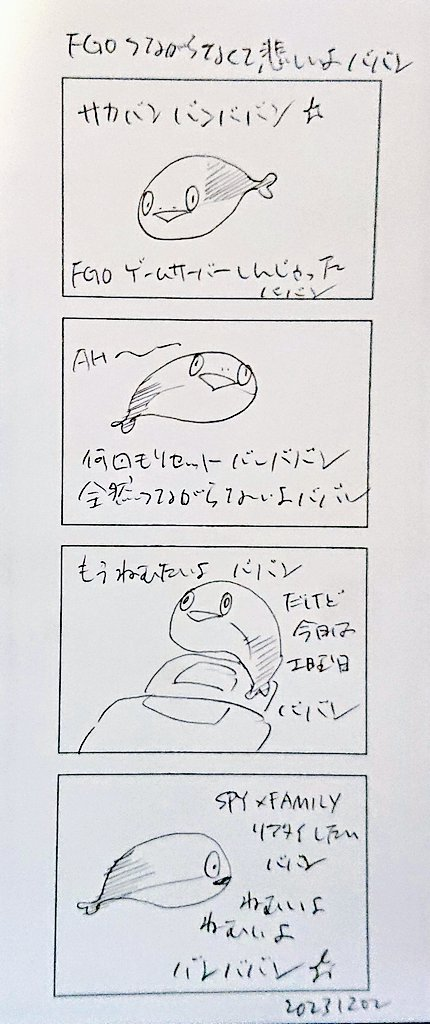 FGOつながらなくて悲しいよババン
サカバン バンババン☆
FGO ゲームサーバーしんじゃった
ババン
AH〜〜
何回もリセット バンババン
全然つながらないよババン
もうねむたいよ ババン
だけど
今日は
土曜日
ババン
SPY×FAMILY
リアタイしたい
ババン
ねむいよ
ねむいよ
バンババン☆
20231202